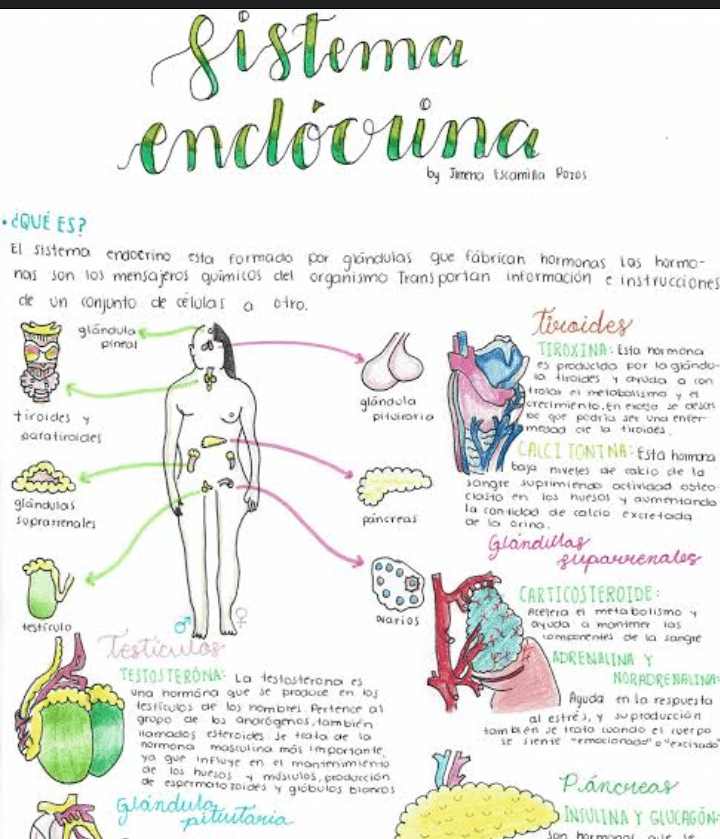 sistema
endócrina
by Jimena Escamilla Pozos
• ¿QUÉ ES?
El sistema endocrino esta formado por glándulas que fabrican hormonas Las hormo-
nas son los mensajeros químicos del organismo Transportan información e instrucciones
de un conjunto de células a otro.
glándula
pineal
tiroides y
paratiroides
glándulas
suprarrenales
testículo
glándula
pituitaria
páncreas
ovarios
Tiroides
TIROXINA: Esta hormona
es producida por la glándu-
la tiroides y ayuda a con
trolar el metabolismo y el
crecimiento. En exceso se
be que podría ser una enfer-
medad de la tiroides.
CALCITONINA: Esta hormona
baja niveles de calcio de la
sangre suprimiendo actividad osteo-
clasto en los huesos y aumentando
la cantidad de calcio excretada
de la orina.
Glándulas
suparrenales
CARTICOSTEROIDE:
Acelera el metabolismo y
ayuda a mantener los
componentes de la sangre
ADRENALINA Y
NORADRENALINA:
Ayuda en la respuesta
al estrés, y su producción
también se trata cuando el cuerpo
se siente "emocionado" o "excitado"
Testículos
TESTOSTERÓNA: La testosterona es
una hormóna que se produce en los
testículos de los hombres. Pertence al
grupo de los andrógenos, también
llamados esteroides. Se trata de la
hormona masculina más importante,
ya que influye en el mantenimiento
de los huesos y músculos, producción
de espermatozoides y glóbulos blancos
Glándula
pituitaria
Páncreas
INSULINA Y GLUCAGÓN:
son hormonas que se